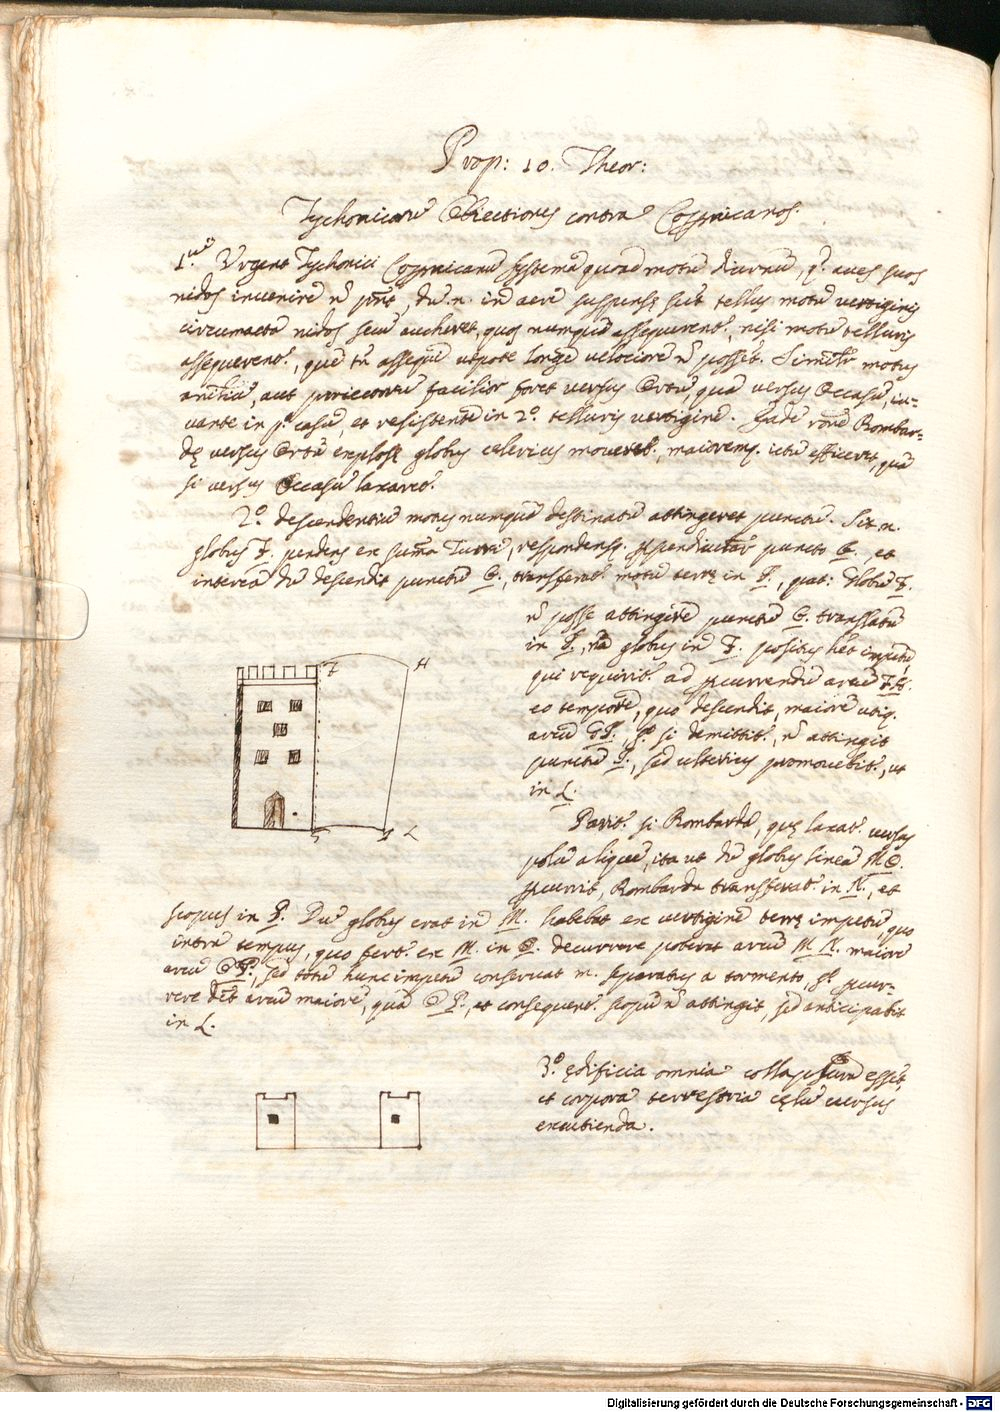 Prop: 10. Theor:
Tychonicorũ Obiectiones contrà Copernicanos.
1.mò Urgent Tychonici Copernicanũ systema quoad motũ diurnũ, q.̃ aves suos
nidos invenire ñ pñt, dũ .n. in aere suspensę sũt tellus motũ vertiginis
circumacta nidos secũ auehaeret, quos numquã assequerent.r, nisi motũ telluris
assequerent.r, quẽ tñ assequi utpote longe velociorẽ ñ possẽt. Similr motus
navitiũ, aut proiectorũ facilior foret versus Ortũ, quã versus Occasũ, iu-
vante in p.o casu, et resistente in 2.o telluris vertigine. Eadẽ rõne Bombar-
dę versus Ortũ explosę globus celerius moveret.r, maioremq. ictũ efficeret, quã
si versus Occasũ laxaret.r
2.o descendentiũ motus numquã destinatũ attingeret punctũ. Sit .n.
globus F. pendens ex suma Turri, respondensq. ppendiculr puncto G. et
interea dũ descendit punctũ G. transferat.r motu terrę in I., pat: Globũ F.
ñ posse attingere punctũ G. translatũ
in I., nã globus in F. positus hẽt impetũ,
qui requirit.r ad pcurrendũ arcũ FH.
eo tempore, quo descendit, maiorẽ utiq.
arcũ GI., si demittit.r, ñ attingit
punctũ I., sed ulterius promovebit.r, ut
in L.
F H
G I L
Parit.r si Bombarda, quę laxat.r versus
polũ aliquẽ, ita ut dũ globus lineã MO.
pcurrit, Bombarda transferat.r in N., et
scopus in P. Dũ globus erat in M. habebat ex vertigine terrę impetũ, quo
intra tempus, quo fert.r ex M. in O. decurrere poterat arcũ MN. maiorẽ
arcu OP., sed totũ hunc impetũ conservat .n. separatus a tormento, pcur-
rere dẽt arcũ maiorẽ, quã OP., et consequent.r scopũ ñ attingit, sed anticipabit
in L.
3.o ędificia omnia collapsura essẽt,
et corpora terrestria cęlũ versus
excutienda.
Digitalisierung gefördert durch die Deutsche Forschungsgemeinschaft - DFG